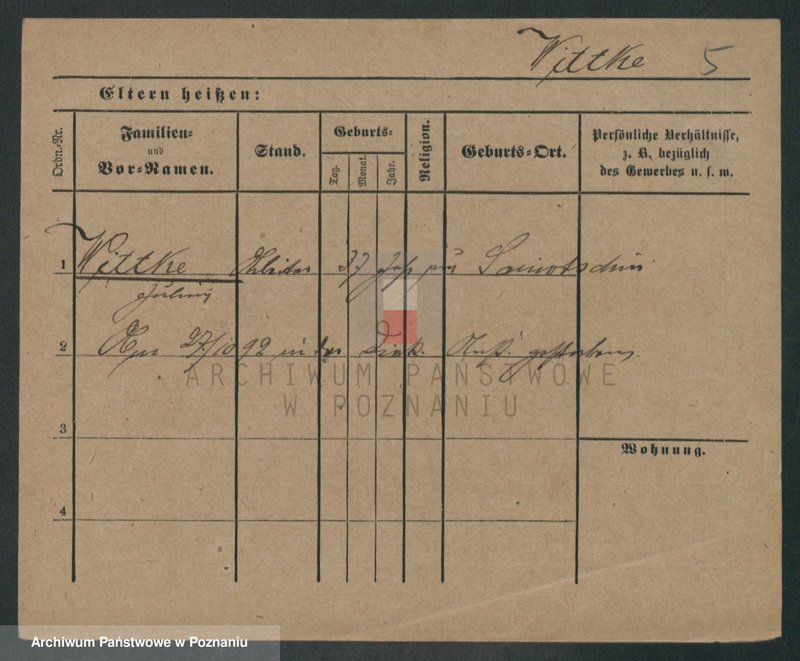 Wittke 5
Eltern heißen:
Ordn.-Nr.
Familien- und Vor-Namen.
Stand.
Geburts-
Tag. Monat. Jahr.
Religion.
Geburts-Ort.
Persönliche Verhältnisse, z. B. bezüglich des Gewerbes u. s. w.
1 Wittke Arbeiter 37 Jahr aus Samotschin
Julius
2 Am 27/10 92 in der Diak. Anst. gestorben
ARCHIWUM PAŃSTWOWE
W POZNANIU
3
Wohnung.
4
Archiwum Państwowe w Poznaniu